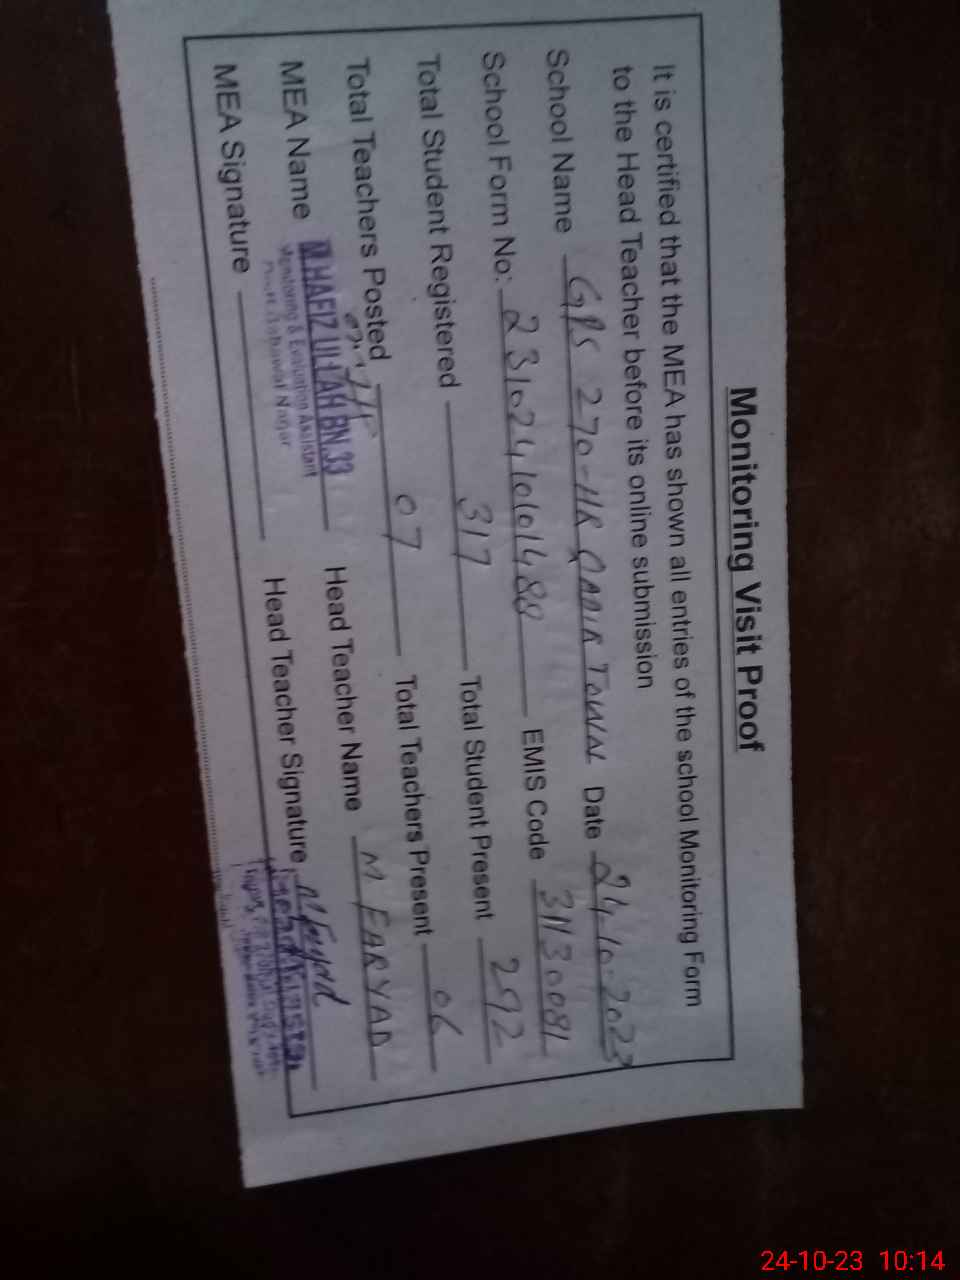 Monitoring Visit Proof
It is certified that the MEA has shown all entries of the school Monitoring Form
to the Head Teacher before its online submission
School Name GPS 270-HR QADIR TOWN Date 24-10-2023
School Form No: 23102410101488 EMIS Code 31130081
Total Student Registered 317 Total Student Present 292
Total Teachers Posted 07 Total Teachers Present 06
MEA Name M.HAFIZ ULLAH BN.33 Head Teacher Name M FARYAD
Monitoring & Evaluation Assistant
Bahawal Nagar
MEA Signature Head Teacher Signature
24-10-23 10:14